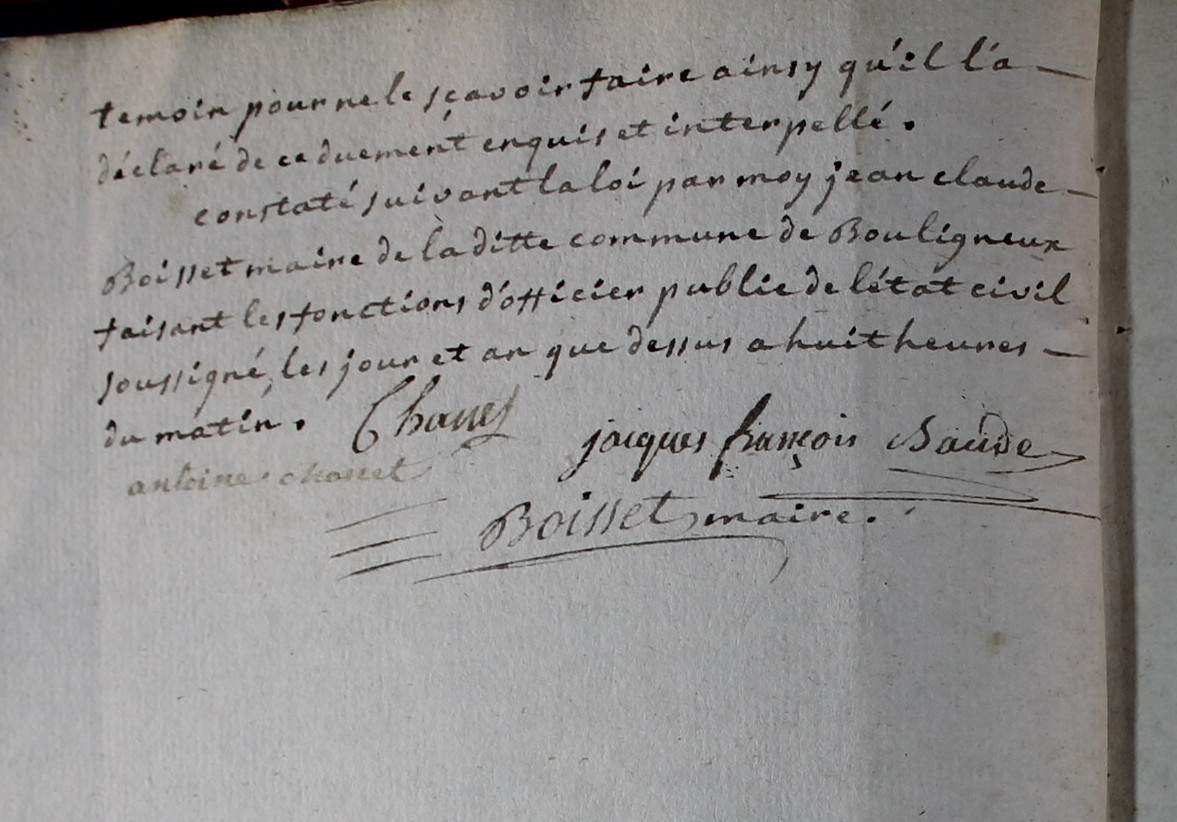 temoin pour ne le sçavoir faire ainsy qu'il l'a
déclaré de ce duement enquis et interpellé.
constaté suivant la loi par moy jean claude
Boisset maire de la ditte commune de Bouligneux
faisant les fonctions d'officier public de l'état civil
soussigné, les jour et an que dessus a huit heures
du matin.
jacques françois Baude
antoine
Boisset, maire.